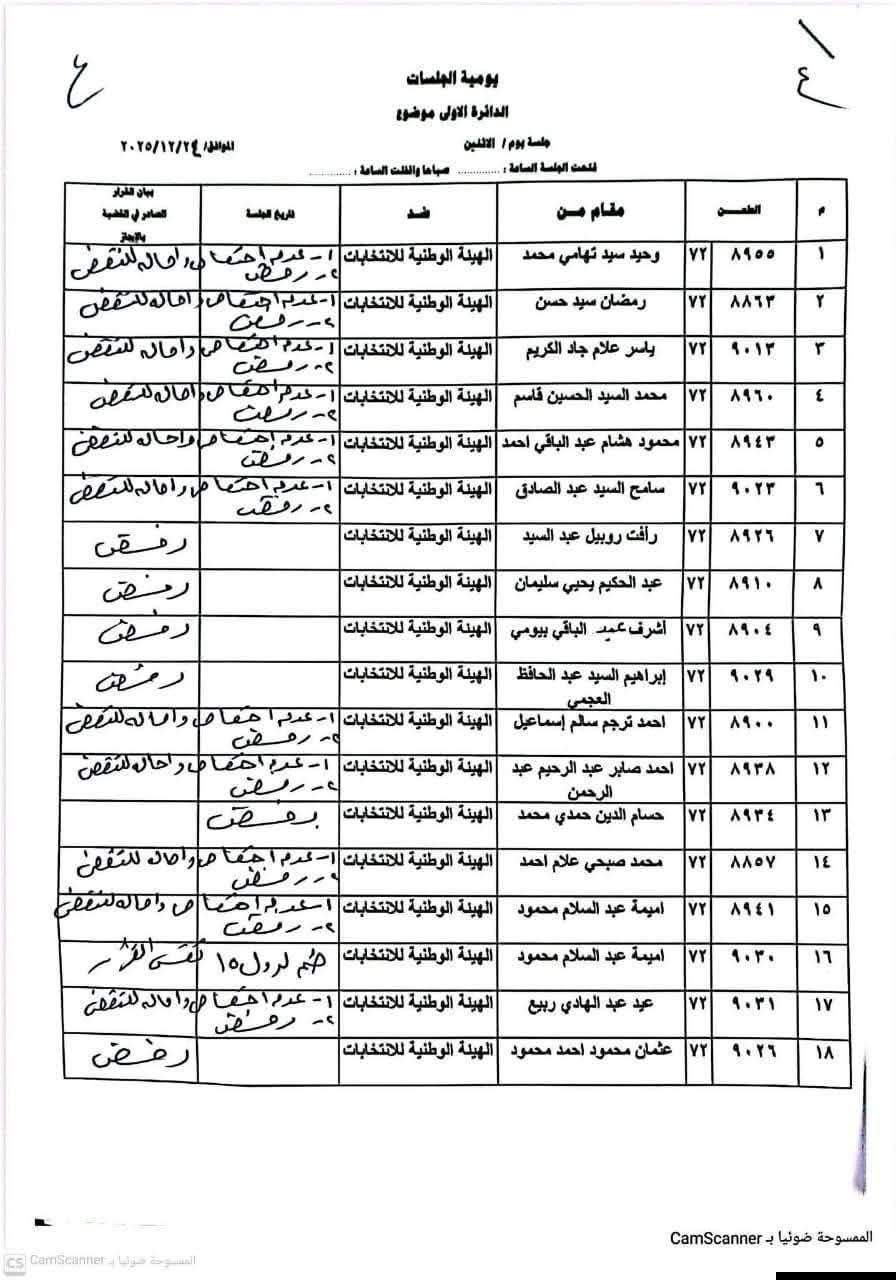 ٤
٤
يومية الجلسات
الدائرة الاولى موضوع
جلسة يوم / الاثنين الموافق/ ٢٠٢٥/١٢/٢٤
فتحت الجلسة الساعة : ............. صباحا واقفلت الساعة : .............
م الطعـــن مقـام مـن ضـد تاريخ الجلسة بيان القرار الصادر في القضية بالإيجاز
١ ٨٩٥٥ ٧٢ وحيد سيد تهامي محمد الهيئة الوطنية للانتخابات ١- عدم اختصاص واحاله للنقض
٢- رفض
٢ ٨٨٦٣ ٧٢ رمضان سيد حسن الهيئة الوطنية للانتخابات ١- عدم اختصاص واحاله للنقض
٢- رفض
٣ ٩٠١٣ ٧٢ ياسر علام جاد الكريم الهيئة الوطنية للانتخابات ١- عدم اختصاص واحاله للنقض
٢- رفض
٤ ٨٩٦٠ ٧٢ محمد السيد الحسين قاسم الهيئة الوطنية للانتخابات ١- عدم اختصاص واحاله للنقض
٢- رفض
٥ ٨٩٤٣ ٧٢ محمود هشام عبد الباقي احمد الهيئة الوطنية للانتخابات ١- عدم اختصاص واحاله للنقض
٢- رفض
٦ ٩٠٢٣ ٧٢ سامح السيد عبد الصادق الهيئة الوطنية للانتخابات ١- عدم اختصاص واحاله للنقض
٢- رفض
٧ ٨٩٢٦ ٧٢ رأفت روبيل عبد السيد الهيئة الوطنية للانتخابات رفض
٨ ٨٩١٠ ٧٢ عبد الحكيم يحيي سليمان الهيئة الوطنية للانتخابات رفض
٩ ٨٩٠٤ ٧٢ أشرف عبد الباقي بيومي الهيئة الوطنية للانتخابات رفض
١٠ ٩٠٢٩ ٧٢ إبراهيم السيد عبد الحافظ الهيئة الوطنية للانتخابات رفض
العجمي
١١ ٨٩٠٠ ٧٢ احمد ترجم سالم إسماعيل الهيئة الوطنية للانتخابات ١- عدم اختصاص واحاله للنقض
٢- رفض
١٢ ٨٩٣٨ ٧٢ احمد صابر عبد الرحيم عبد الهيئة الوطنية للانتخابات ١- عدم اختصاص واحاله للنقض
الرحمن ٢- رفض
١٣ ٨٩٣٤ ٧٢ حسام الدين حمدي محمد الهيئة الوطنية للانتخابات رفض
١٤ ٨٨٥٧ ٧٢ محمد صبحي علام احمد الهيئة الوطنية للانتخابات ١- عدم اختصاص واحاله للنقض
٢- رفض
١٥ ٨٩٤١ ٧٢ اميمة عبد السلام محمود الهيئة الوطنية للانتخابات ١- عدم اختصاص واحاله للنقض
٢- رفض
١٦ ٩٠٣٠ ٧٢ اميمة عبد السلام محمود الهيئة الوطنية للانتخابات ضم لرول ١٥ نفس القرار
١٧ ٩٠٣١ ٧٢ عيد عبد الهادي ربيع الهيئة الوطنية للانتخابات ١- عدم اختصاص واحاله للنقض
٢- رفض
١٨ ٩٠٢٦ ٧٢ عثمان محمود احمد محمود الهيئة الوطنية للانتخابات رفض
الممسوحة ضوئيا بـ CamScanner
CS الممسوحة ضوئيا بـ CamScanner